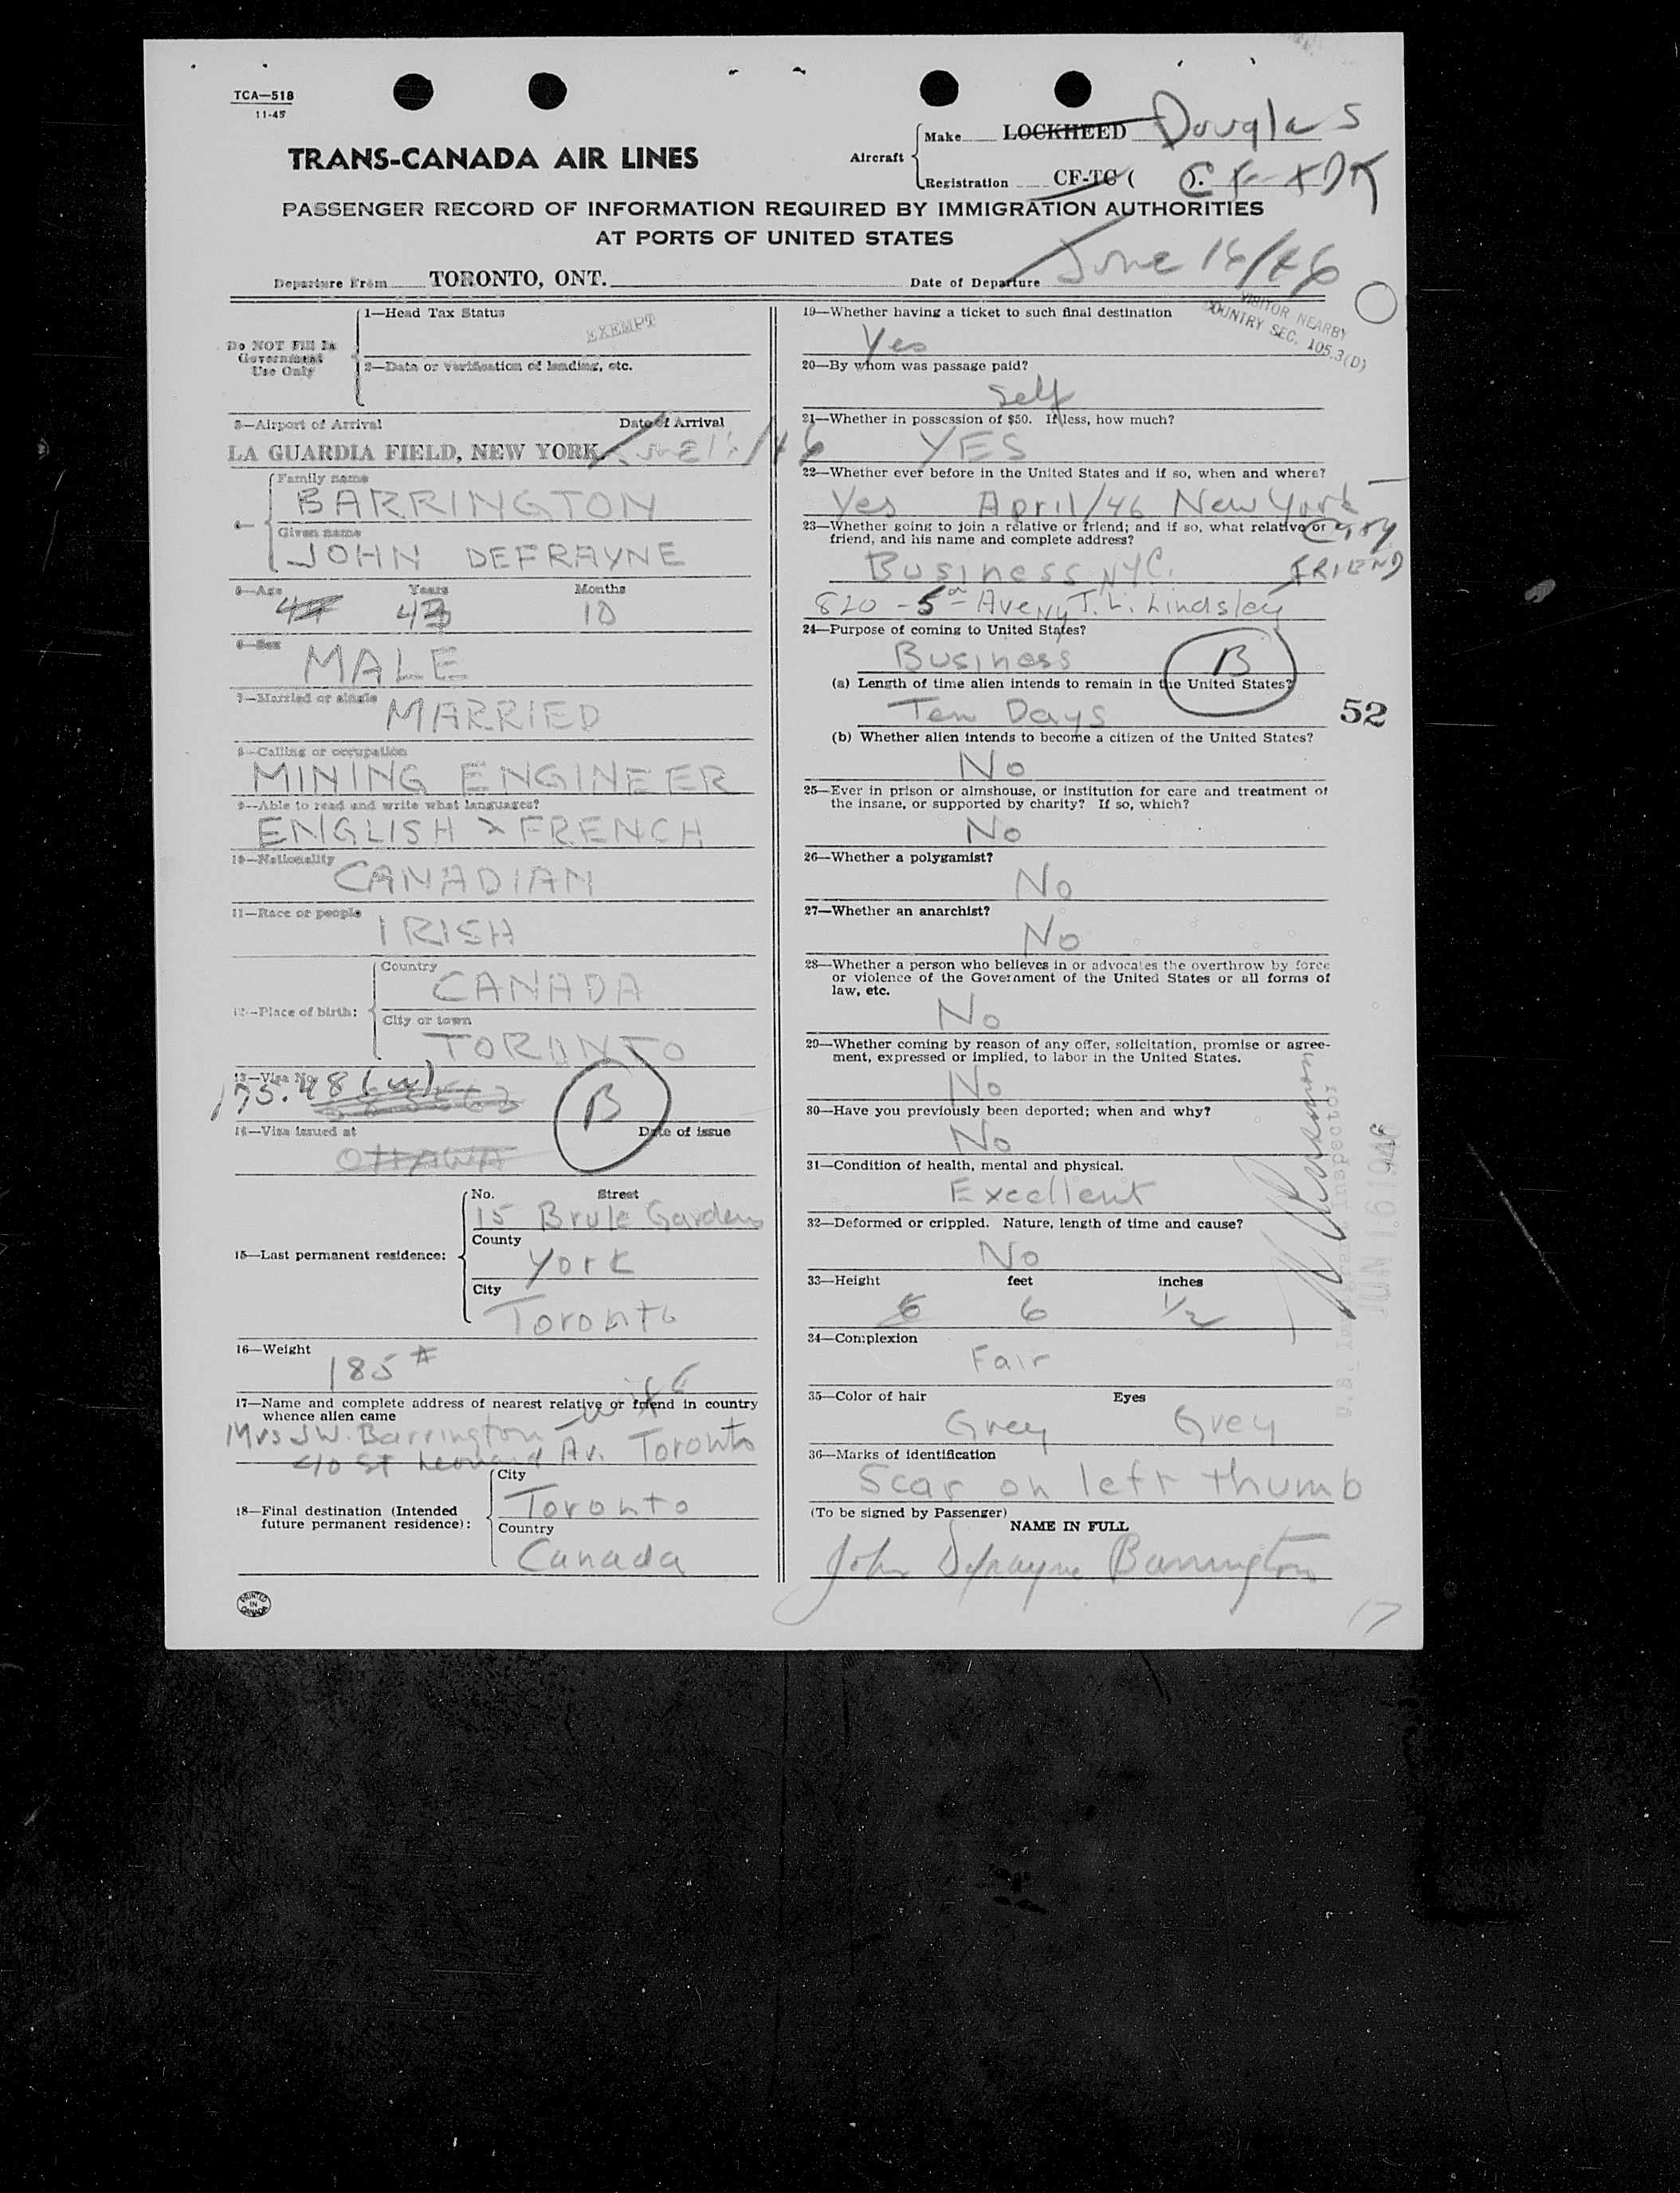 TCA—518
11-45
TRANS-CANADA AIR LINES
Aircraft
Make LOCKHEED Douglas
Registration CF-TC ( ). CF-TDK
PASSENGER RECORD OF INFORMATION REQUIRED BY IMMIGRATION AUTHORITIES
AT PORTS OF UNITED STATES
Departure From TORONTO, ONT.
Date of Departure June 16/46
VISITOR NEARBY
COUNTRY SEC. 105.3(D)
Do NOT Fill In
Government
Use Only
1—Head Tax Status
EXEMPT
2—Date or verification of landing, etc.
3—Airport of Arrival Date of Arrival
LA GUARDIA FIELD, NEW YORK June 16/46
4—
Family name
BARRINGTON
Given name
JOHN DEFRAYNE
5—Age Years Months
43 10
6—Sex
MALE
7—Married or single
MARRIED
8—Calling or occupation
MINING ENGINEER
9—Able to read and write what languages?
ENGLISH & FRENCH
10—Nationality
CANADIAN
11—Race or people
IRISH
12—Place of birth:
Country
CANADA
City or town
TORONTO
13—Visa No.
175.48 (w)
B
14—Visa issued at Date of issue
OTTAWA
15—Last permanent residence:
No. Street
15 Brule Gardens
County
York
City
Toronto
16—Weight
185 #
17—Name and complete address of nearest relative or friend in country
whence alien came
wife
Mrs J W. Barrington
c/o St Leonard Av. Toronto
18—Final destination (Intended
future permanent residence):
City
Toronto
Country
Canada
PRINTED
IN
CANADA
19—Whether having a ticket to such final destination
Yes
20—By whom was passage paid?
Self
21—Whether in possession of $50. If less, how much?
YES
22—Whether ever before in the United States and if so, when and where?
Yes April/46 New York
23—Whether going to join a relative or friend; and if so, what relative or
friend, and his name and complete address?
Business NYC. FRIEND
820 - 5th Ave NY T. L. Lindsley
24—Purpose of coming to United States?
Business
B
(a) Length of time alien intends to remain in the United States?
Ten Days
52
(b) Whether alien intends to become a citizen of the United States?
No
25—Ever in prison or almshouse, or institution for care and treatment of
the insane, or supported by charity? If so, which?
No
26—Whether a polygamist?
No
27—Whether an anarchist?
No
28—Whether a person who believes in or advocates the overthrow by force
or violence of the Government of the United States or all forms of
law, etc.
No
29—Whether coming by reason of any offer, solicitation, promise or agree-
ment, expressed or implied, to labor in the United States.
No
30—Have you previously been deported; when and why?
No
31—Condition of health, mental and physical.
Excellent
32—Deformed or crippled. Nature, length of time and cause?
No
33—Height feet inches
6 1/2
34—Complexion
Fair
35—Color of hair Eyes
Grey Grey
36—Marks of identification
Scar on left thumb
(To be signed by Passenger)
NAME IN FULL
John Defrayne Barrington
JUN 16 1946
17